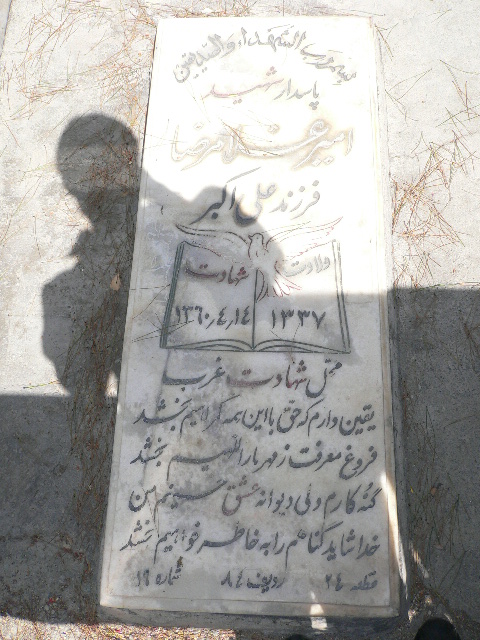 بسم رب الشهداء والصدیقین
پاسدار شهید
امیر غلامرضا
فرزند علی اکبر
ولادت شهادت
۱۳۳۷ ۱۳۶۰،۴،۱۴
محل شهادت غرب
یقین دارم که حق با این همه اکراهیم بخشد
فروغ معرفت ز مهر یار
گنه کارم ولی دیوانه عشق من
خدا شاید گناهم را به خاطر خواهیم بخشد
قطعه ۲۴ ردیف ۸۴ شماره ۱۹